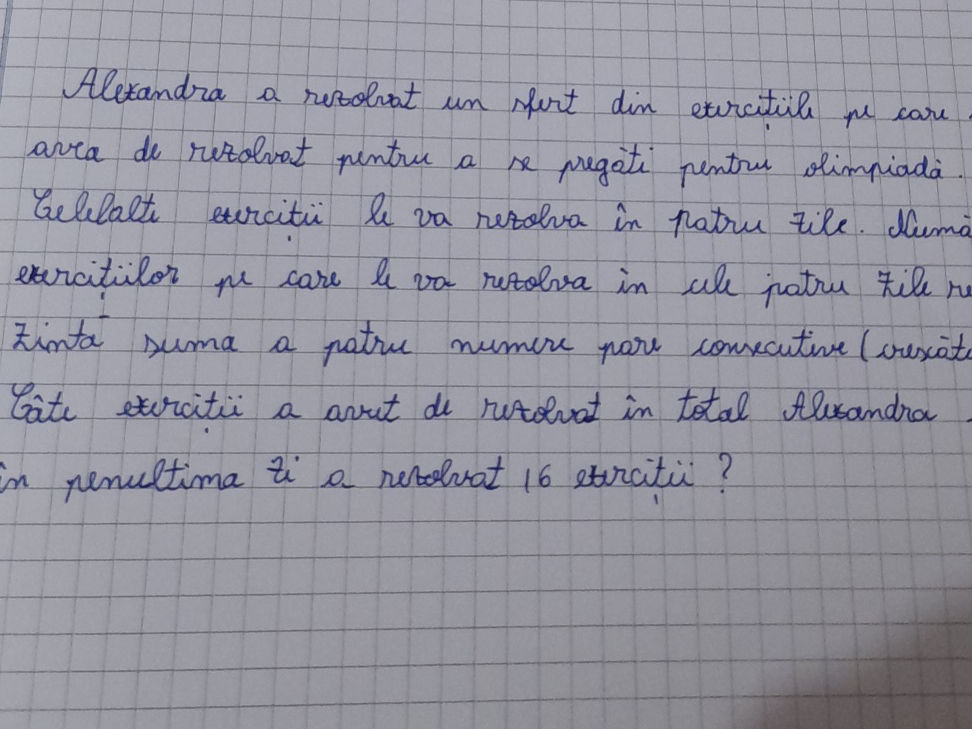 Alexandra a rezolvat un sfert din exercițiile pe care
avea de rezolvat pentru a se pregăti pentru olimpiadă.
Celelalte exerciții le va rezolva în patru zile. Numă
exercițiilor pe care le va rezolva în cele patru zile re
zintă suma a patru numere pare consecutive (crescăto
Câte exerciții a avut de rezolvat în total Alexandra
în penultima zi a rezolvat 16 exerciții ?